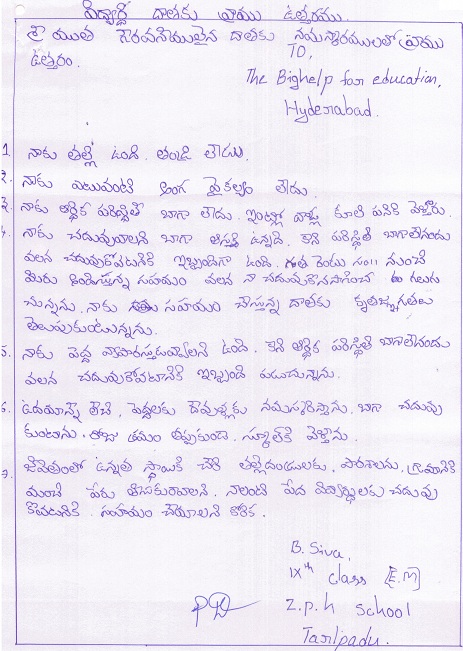 విద్యార్థి దాతకు వ్రాయు ఉత్తరము.
శ్రీ యుత గౌరవనీయులైన దాతకు నమస్కారములతో వ్రాయు
ఉత్తరం.
TO,
The Bighelp for education,
Hyderabad.
1. నాకు తల్లి ఉంది. తండ్రి లేడు.
2. నాకు ఎటువంటి అంగ వైకల్యం లేదు.
3. నాకు ఆర్థిక పరిస్థితి బాగా లేదు. ఇంట్లో వాళ్లు కూలి పనికి వెళ్తారు.
4. నాకు చదువుకోవాలని బాగా ఆసక్తి ఉన్నది. కాని పరిస్థితి బాగాలేనందు
వలన చదువుకోవటానికి ఇబ్బందిగా ఉంది. గత రెండు నుంచి
మీరు అందిస్తున్న సహాయం వలన నా చదువుకొనసాగించ గలుగు
చున్నాను. నాకు సహాయం చేస్తున్న దాతకు కృతజ్ఞతలు
తెలుపుకుంటున్నాను.
5. నాకు పెద్ద ఉంది. కాని ఆర్థిక పరిస్థితి బాగాలేనందు
వలన చదువుకోవటానికి ఇబ్బంది పడుచున్నాను.
6. ఉదయాన్నే లేచి, పెద్దలకు దేవుళ్లకు నమస్కరిస్తాను. బాగా చదువు
కుంటాను. రోజు తప్పకుండా స్కూల్‌కి వెళ్తాను.
7. జీవితంలో ఉన్నత స్థాయికి చేరి తల్లిదండ్రులకు, పాఠశాలకు, గ్రామానికి
మంచి పేరు తీసుకురావాలని. నాలాంటి పేద విద్యార్థులకు చదువు
కోవటానికి సహాయం చేయాలని కోరిక.
B. Siva,
IXth class [E.M]
Z.p.h School
Tanlpadu.